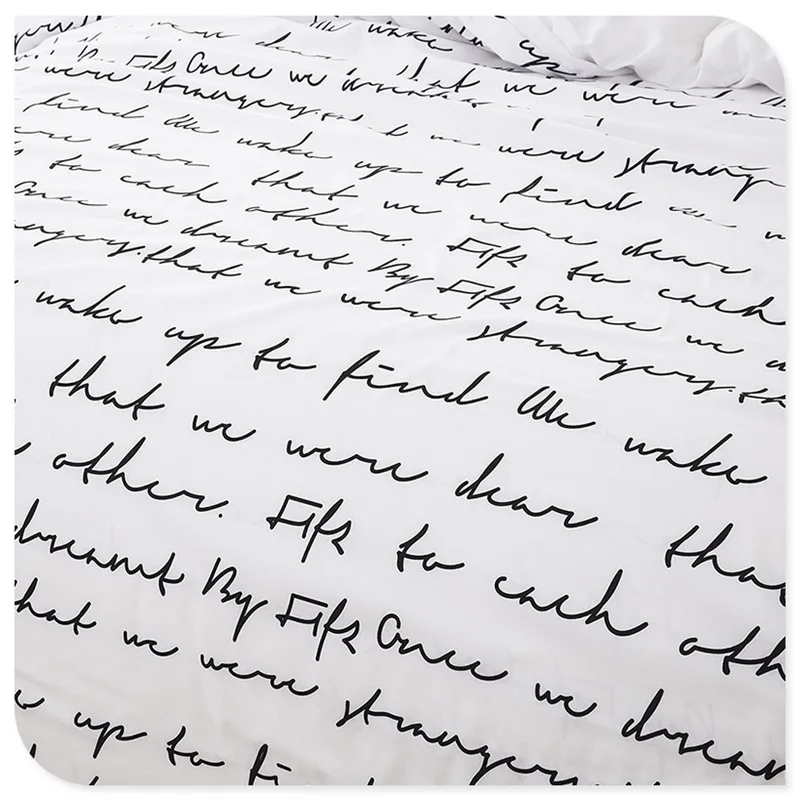 wake up
By Fifs Once we dreamt that we were
were strangers. we were strang
find We wake up to find
were dear that we were dear
to each other. Fifs to each
Once we dreamt By Fifs Once we
that we were strangers.
wake up to find We wake
that we were dear that
other. Fifs to each oth
dreamt By Fifs Once we dream
that we were strangers
up to fin